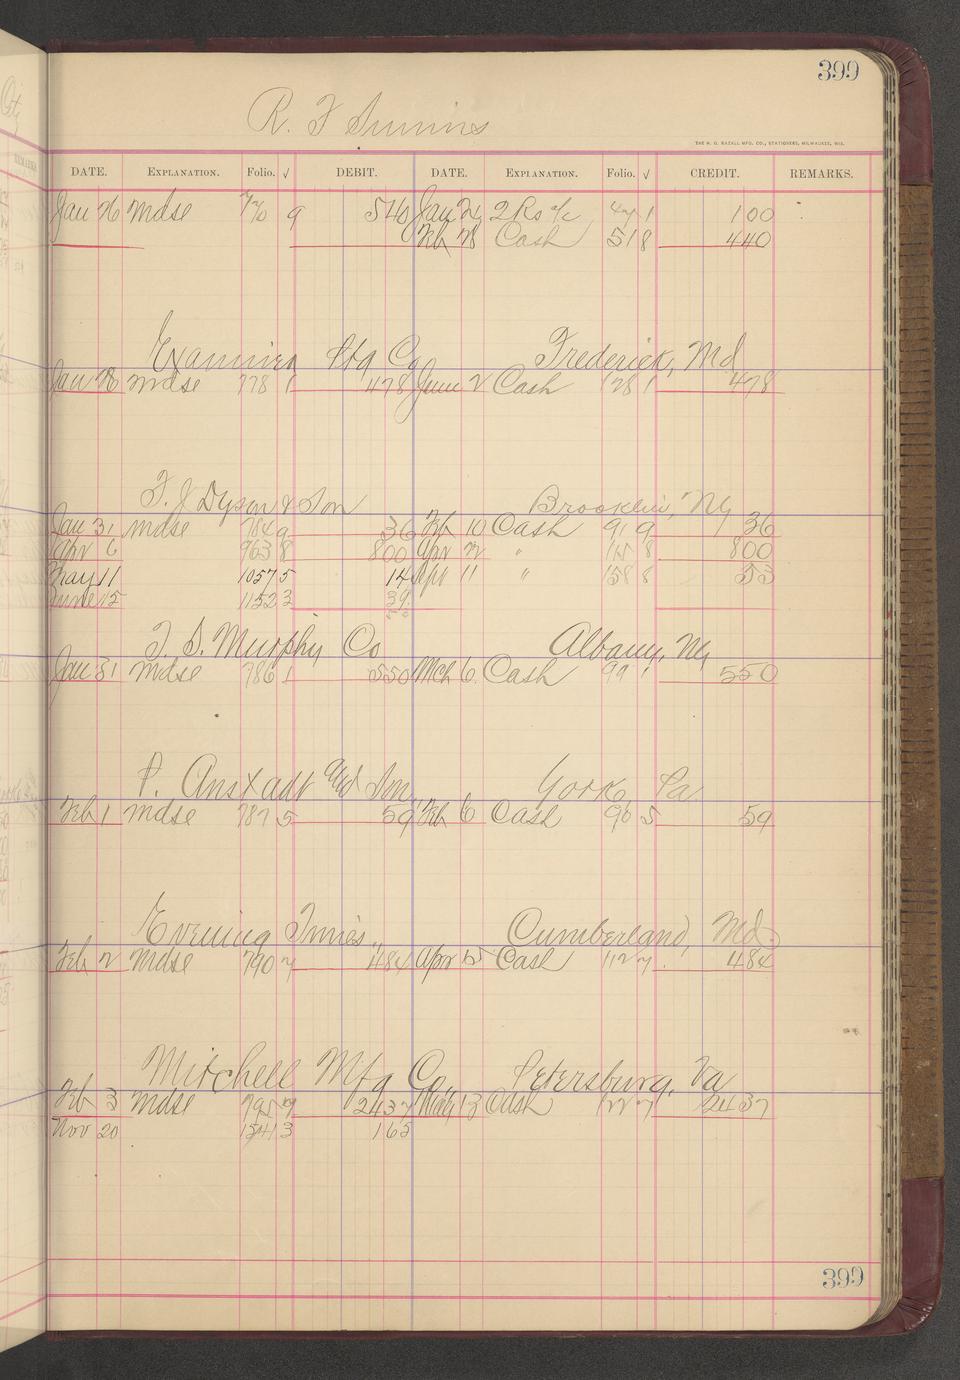 399
R. F
THE H. G. RAZALL MFG. CO., STATIONERS, MILWAUKEE, WIS.
DATE. EXPLANATION. Folio. √ DEBIT. DATE. EXPLANATION. Folio. √ CREDIT. REMARKS.
Jan 26 Mdse 770 9 540 Jan 2Rs 1 100
Feb 28 Cash 51 8 440
Examiner Ptg Co Frederick, Md
Jan 28 Mdse 778 1 478 June 2 Cash 128 1 478
F. J. Dyson & Son Brooklin, Ny
Jan 31 Mdse 784 9 36 Feb 10 Cash 91 9 36
Apr 6 963 8 800 Apr " 8 800
May 11 1057 5 14 11 " 158 8 53
June 15 1152 3 39
T. S. Murphy Co Albany, Ny
Jan 31 Mdse 786 1 550 Mch 6 Cash 99 1 550
P. Anstadt and Son York, Pa.
Feb 1 Mdse 787 5 59 Feb 6 Cash 90 5 59
Evening Times Cumberland, Md
Feb 2 Mdse 790 7 484 Apr 15 Cash 112 7 484
Mitchell Mfg Co, Petersburg, Va
Feb 3 Mdse 7 2437 13 Cash 7 2437
Nov 20 3 165
399